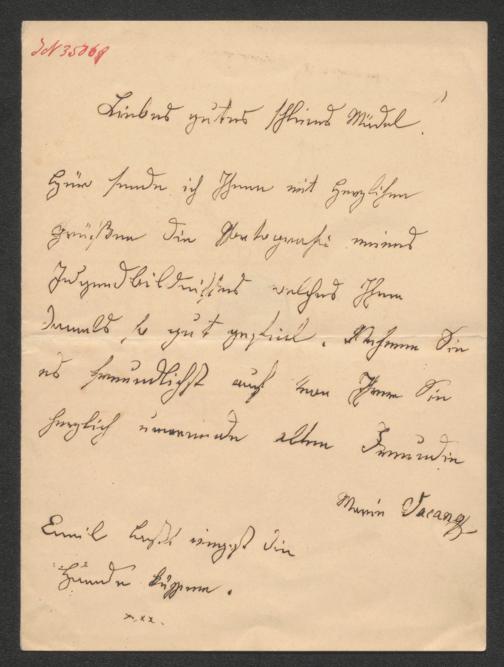 JN 35068
Liebes gutes schlimes Mädel!
Hier sende ich Ihnen mit herzlichen
Grüßen die Photografie meines
Jugendbildnißes welches Ihnen
damals so gut gefiel. Nehmen Sie
es freundlichst auf von Ihrer Sie
herzlich umarmende alten Freundin
Marie
Emil läßt innigst die
Hände küssen.
x.xx.